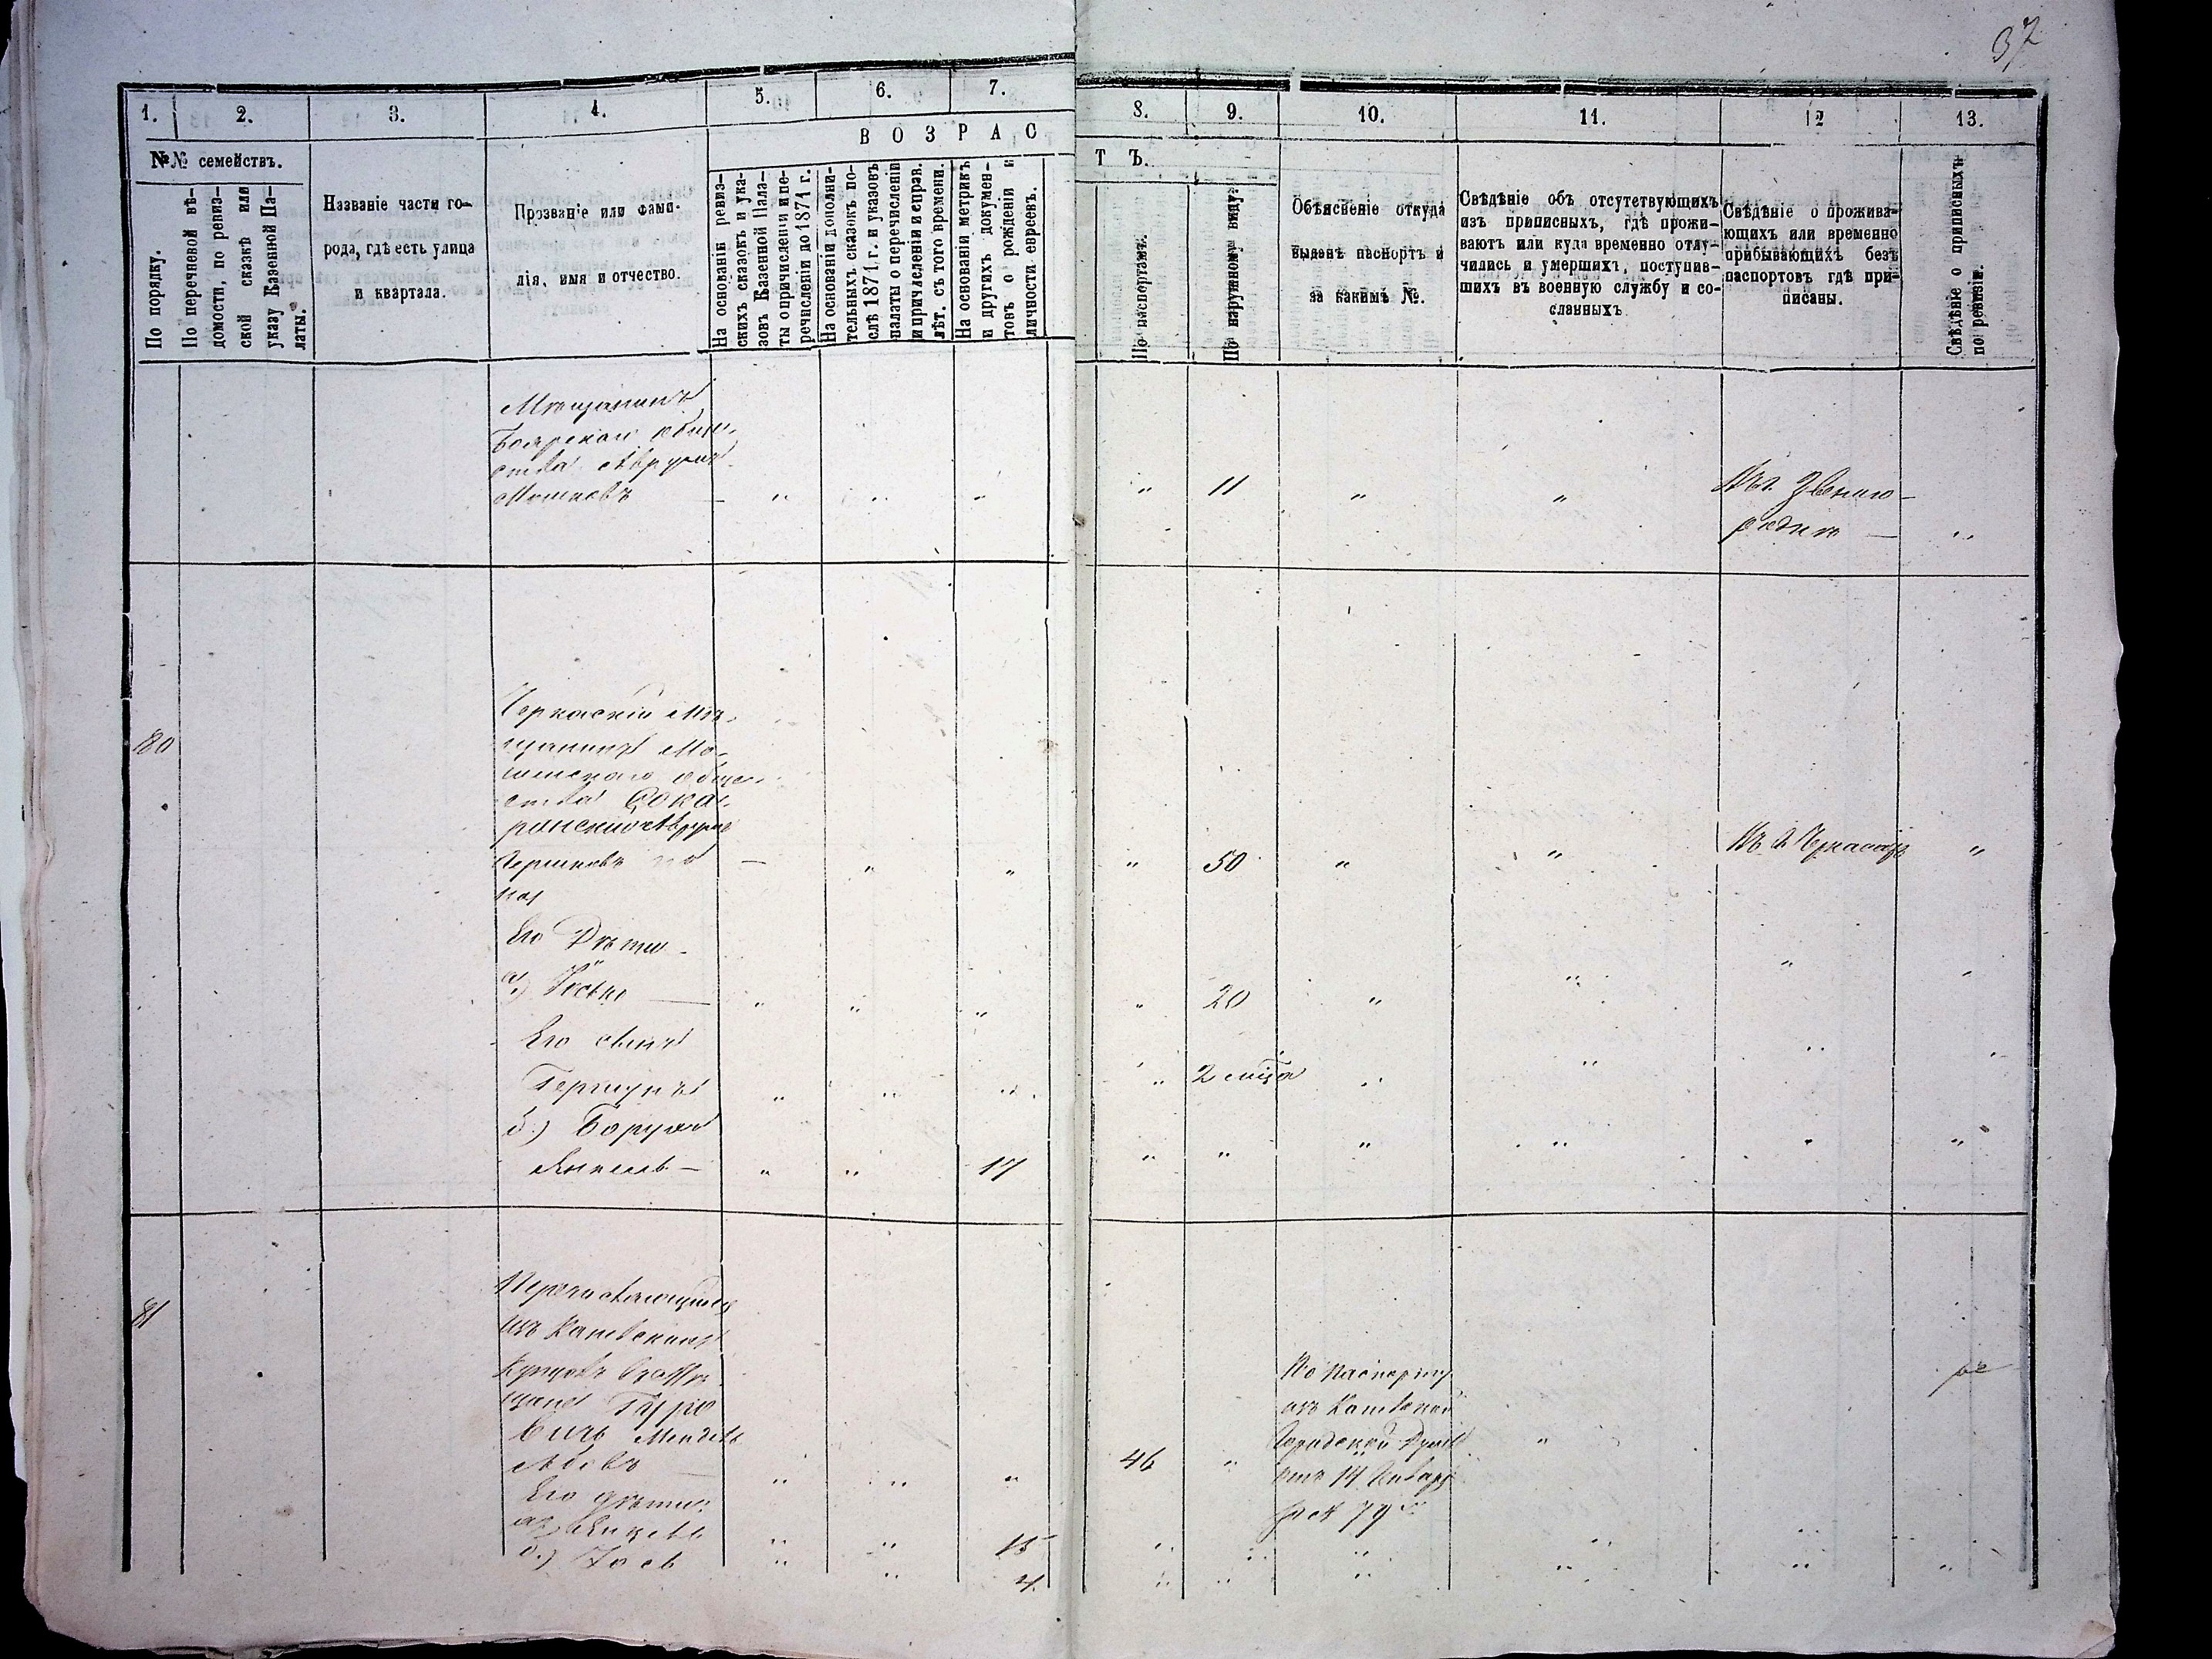 37
1. 2. 3. 4. 5. 6. 7. 8. 9. 10. 11. 12 13.
В О З Р А С Т Ъ.
№№ семействъ.
По порядку.
По перечневой вѣ-
домости, по ревиз-
ской сказкѣ или
указу Казенной Па-
латы.
Названіе части го-
рода, гдѣ есть улица
и квартала.
Прозваніе или фами-
лія, имя и отчество.
На основаніи ревиз-
скихъ сказокъ и ука-
зовъ Казенной Пала-
ты о причисленіи и пе-
речисленіи до 1871 г.
На основаніи дополни-
тельныхъ сказокъ по-
слѣ 1871 г. и указовъ
палаты о перечисленіи
и причисленіи и справ.
лѣт. съ того времени.
На основаніи метрикъ
и другихъ докумен-
товъ о рожденіи и
личности евреевъ.
По паспортамъ.
По наружному виду.
Объясненіе откуда
выданъ паспортъ и
за какимъ №.
Свѣдѣніе объ отсутствующихъ
изъ приписныхъ, гдѣ прожи-
ваютъ или куда временно отлу-
чились и умершихъ, поступив-
шихъ въ военную службу и со-
сланныхъ
Свѣдѣніе о прожива-
ющихъ или временно
прибывающихъ безъ
паспортовъ гдѣ при-
писаны.
Свѣдѣніе о приписныхъ
по ревизіи.
Мѣщанинъ
Боярскаго обще-
ства Аврумъ
Мошковъ — " " " " 11 " " Въ г. Звениго-
родкѣ — "
80 Черкаскій мѣ-
щанинъ Мо-
шенскаго обще-
ства
Аврумъ
Гершковъ — " " " 50 " " Въ г. Черкасахъ "
Его Дѣти
а) Іосько — " " " " 20 " " " "
Его сынъ
Гершунъ " " " "
б.) Борухъ
Янкель — " " 17 " " " " " "
81 Перечисляющійся
изъ Каневскихъ
Купцовъ
Мендель
" " " 46 "
По паспорту
изъ Каневской
Городской Думы
14 Января
79
Его дѣти:
а) " " 15 " " " " "
б.) Іось " " 4 " " " " " "